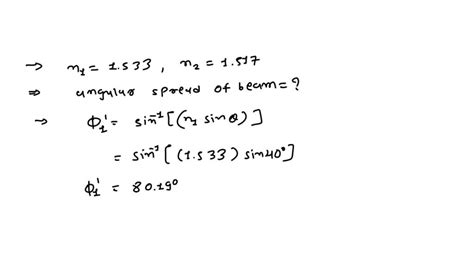 → n₁ = 1.533, n₂ = 1.517
⇒ angular spread of beam = ?
→ Φ₁' = sin⁻¹[(n₁ sin θ)]
= sin⁻¹[(1.533) sin 40°]
Φ₁' = 80.19°